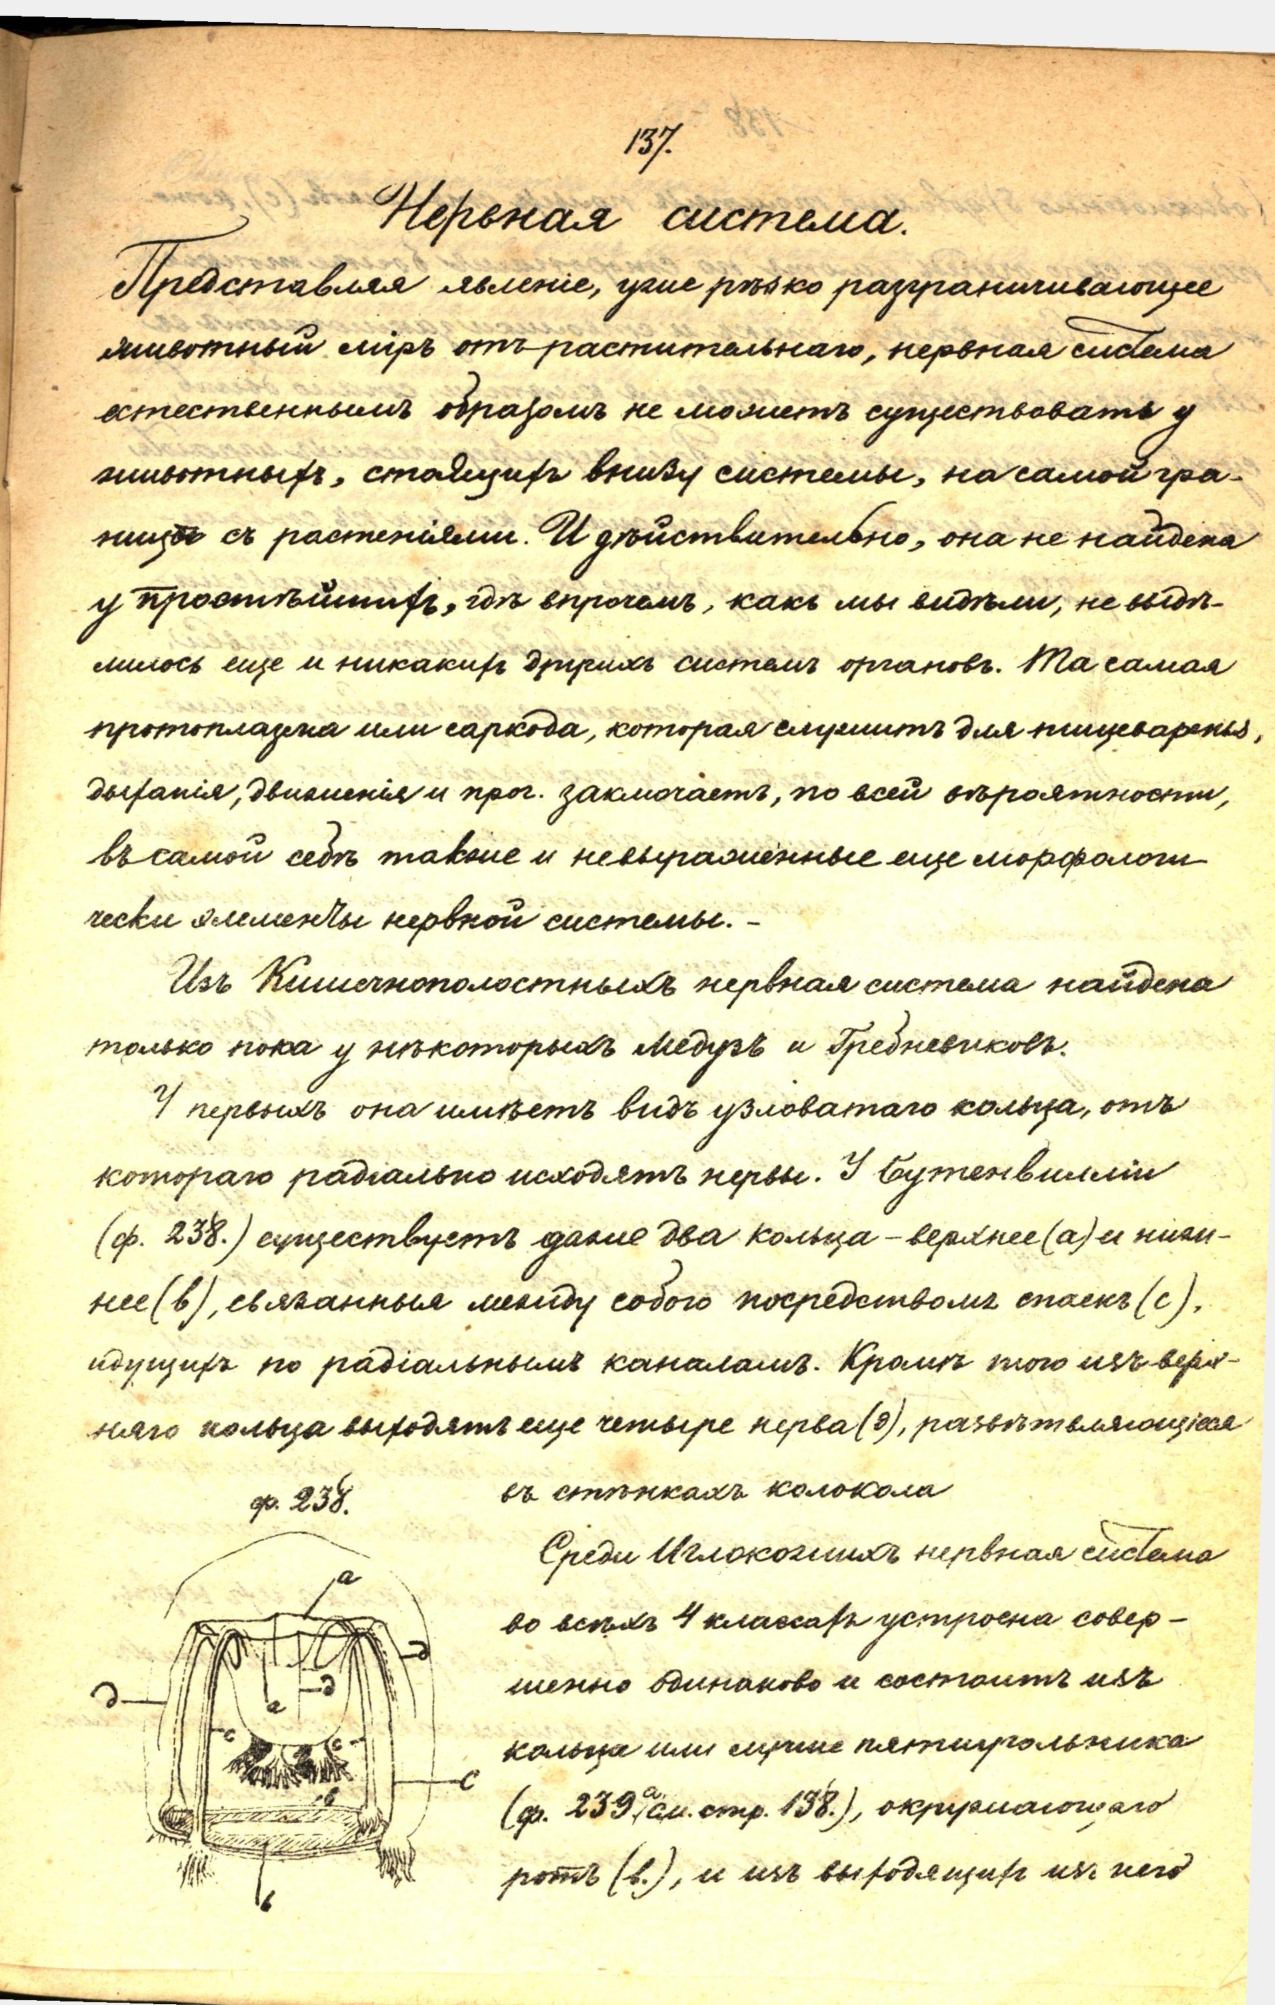 137.
Нервная система.
Представляя явленіе, уже рѣзко разграничивающее
животный міръ отъ растительнаго, нервная система
естественнымъ образомъ не можетъ существовать у
животныхъ, стоящихъ внизу системы, на самой гра-
ницѣ съ растеніями. И дѣйствительно, она не найдена
у простѣйшихъ, гдѣ впрочемъ, какъ мы видѣли, не выдѣ-
лилось еще и никакихъ другихъ системъ органовъ. Та самая
протоплазма или саркода, которая служитъ для пищеваренья,
дыханія, движенія и проч. заключаетъ, по всей вѣроятности,
въ самой себѣ также и невыраженные еще морфологи-
чески элементы нервной системы. –
Изъ Кишечнополостныхъ нервная система найдена
только пока у нѣкоторыхъ Медузъ и Гребневиковъ.
У первыхъ она имѣетъ видъ узловатаго кольца, отъ
котораго радіально исходятъ нервы. У Бугенвилліи
(ф. 238.) существуетъ даже два кольца – верхнее (а) и ниж-
нее (в), связанныя между собою посредствомъ спаекъ (с),
идущихъ по радіальнымъ каналамъ. Кромѣ того изъ верх-
няго кольца выходятъ еще четыре нерва (д), развѣтвляющіеся
въ стѣнкахъ колокола
ф. 238.
Среди Иглокожихъ нервная система
во всѣхъ 4 классахъ устроена совер-
шенно одинаково и состоитъ изъ
кольца или лучше пятиугольника
(ф. 239 а см. стр. 138.), окружающаго
ротъ (в.), и изъ выходящихъ изъ него
а
д
д
д
а
с
с
с
в
в